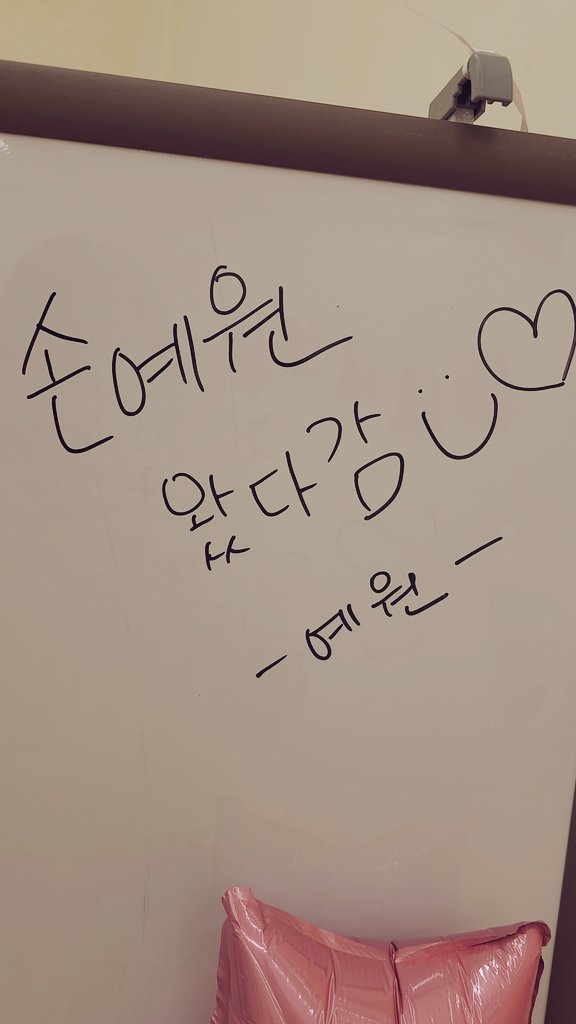 손예원
왔다감
- 예원 -